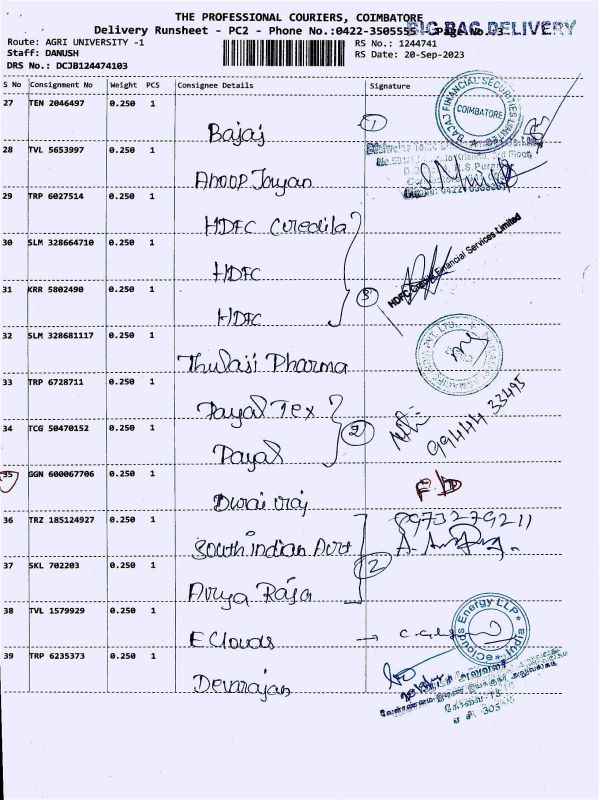 THE PROFESSIONAL COURIERS, COIMBATORE
BIG BAG DELIVERY
Delivery Runsheet - PC2 - Phone No.:0422-3505555
Page No. 3
Route: AGRI UNIVERSITY -1
RS No.: 1244741
Staff: DANUSH
RS Date: 20-Sep-2023
DRS No.: DCJB124474103
S No Consignment No Weight PCS Consignee Details Signature
27 TEN 2046497 0.250 1
Bajaj
1
BAJAJ FINANCIAL SECURITIES LIMITED
COIMBATORE
28 TVL 5653997 0.250 1
Anoop Jayan
29 TRP 6027514 0.250 1
HDFC Credila
30 SLM 328664710 0.250 1
HDFC
3
HDFC Credila Financial Services Limited
31 KRR 5802490 0.250 1
HDFC
32 SLM 328681117 0.250 1
Thulasi Pharma
33 TRP 6728711 0.250 1
Dayal Tex
99444 33495
34 TCG 50470152 0.250 1
2
Dayal
35 GGN 600067706 0.250 1
Durai raj
36 TRZ 185124927 0.250 1
8973279211
South indian
37 SKL 702203 0.250 1
2
Arya Raja
38 TVL 1579929 0.250 1
EClouds
eClouds Energy LLP
India
39 TRP 6235373 0.250 1
Devarajan